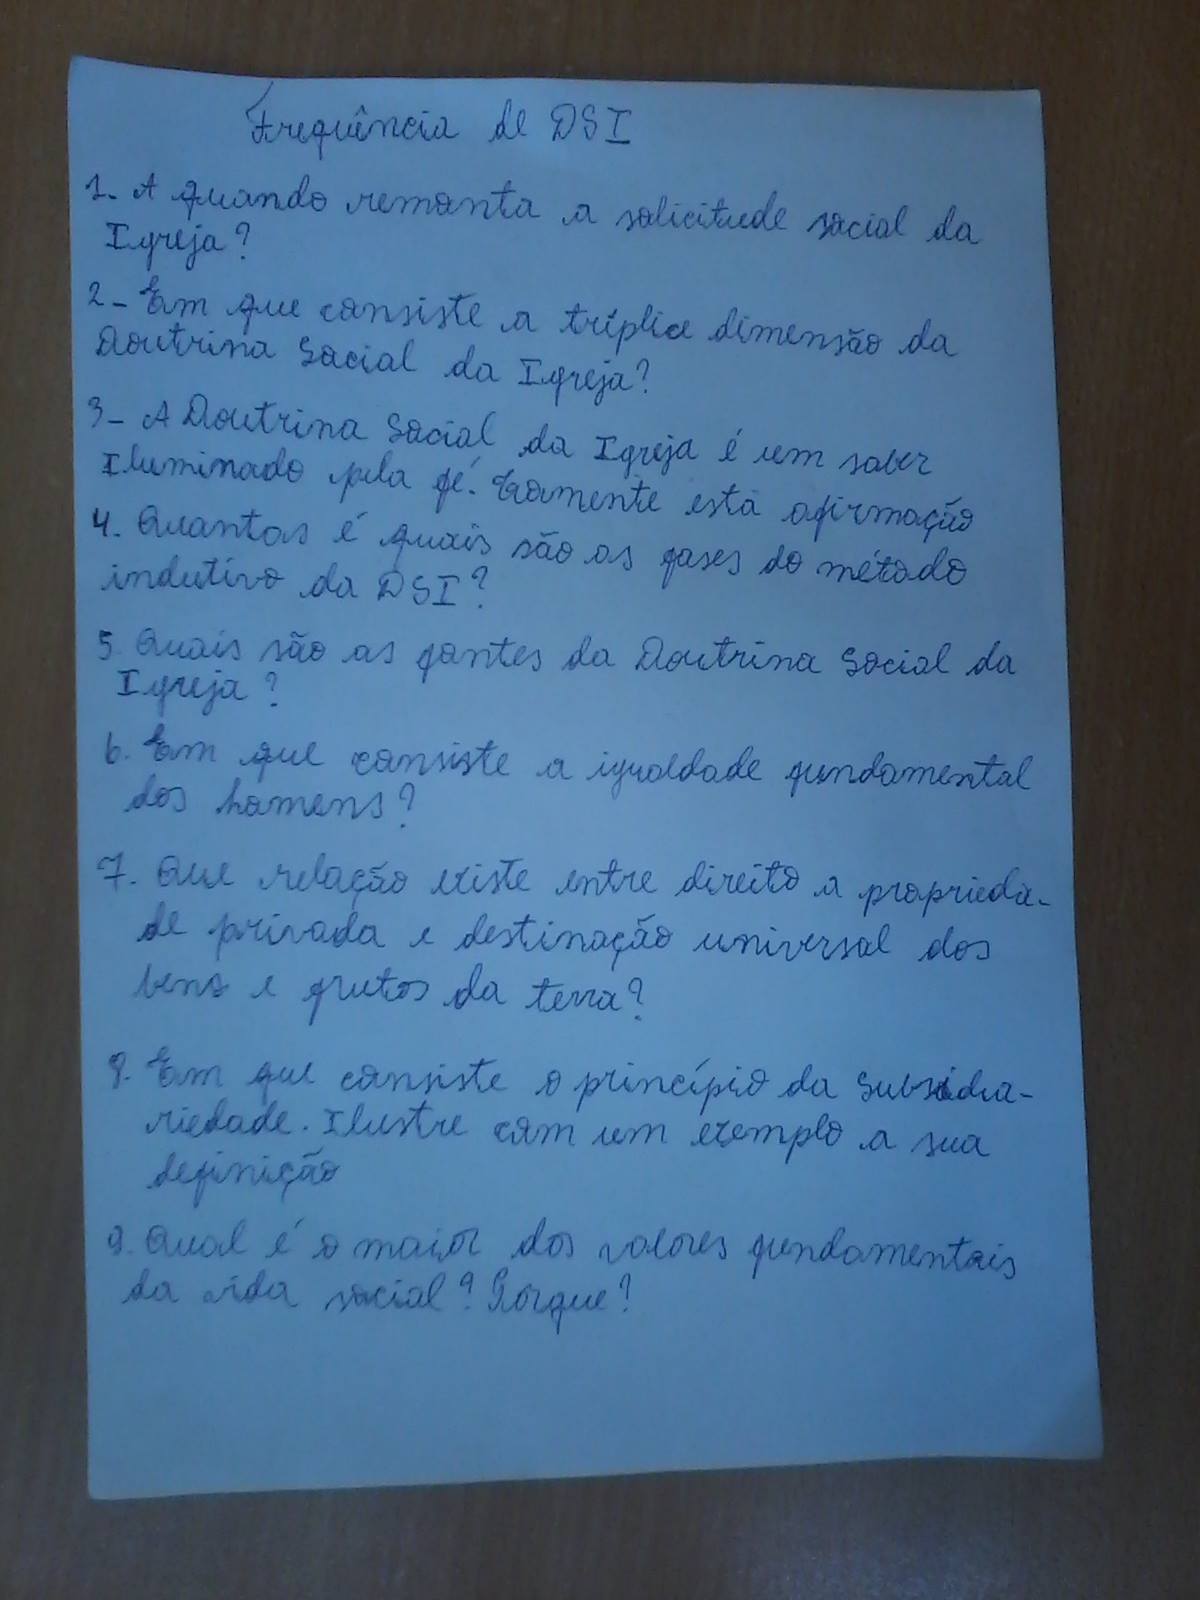 Frequência de DSI
1. A quando remonta a solicitude social da
Igreja?
2- Em que consiste a tríplice dimensão da
Doutrina Social da Igreja?
3- A Doutrina Social da Igreja é um saber
Iluminado pela fé. Comente está afirmação
4. Quantas é quais são as fases do método
indutivo da DSI?
5. Quais são as fontes da Doutrina Social da
Igreja?
6. Em que consiste a igualdade fundamental
dos homens?
7. Que relação existe entre direito a proprieda-
de privada e destinação universal dos
bens e frutos da terra?
8. Em que consiste o princípio da Subsidia-
riedade. Ilustre com um exemplo a sua
definição
9. Qual é o maior dos valores fundamentais
da vida social? Porque?